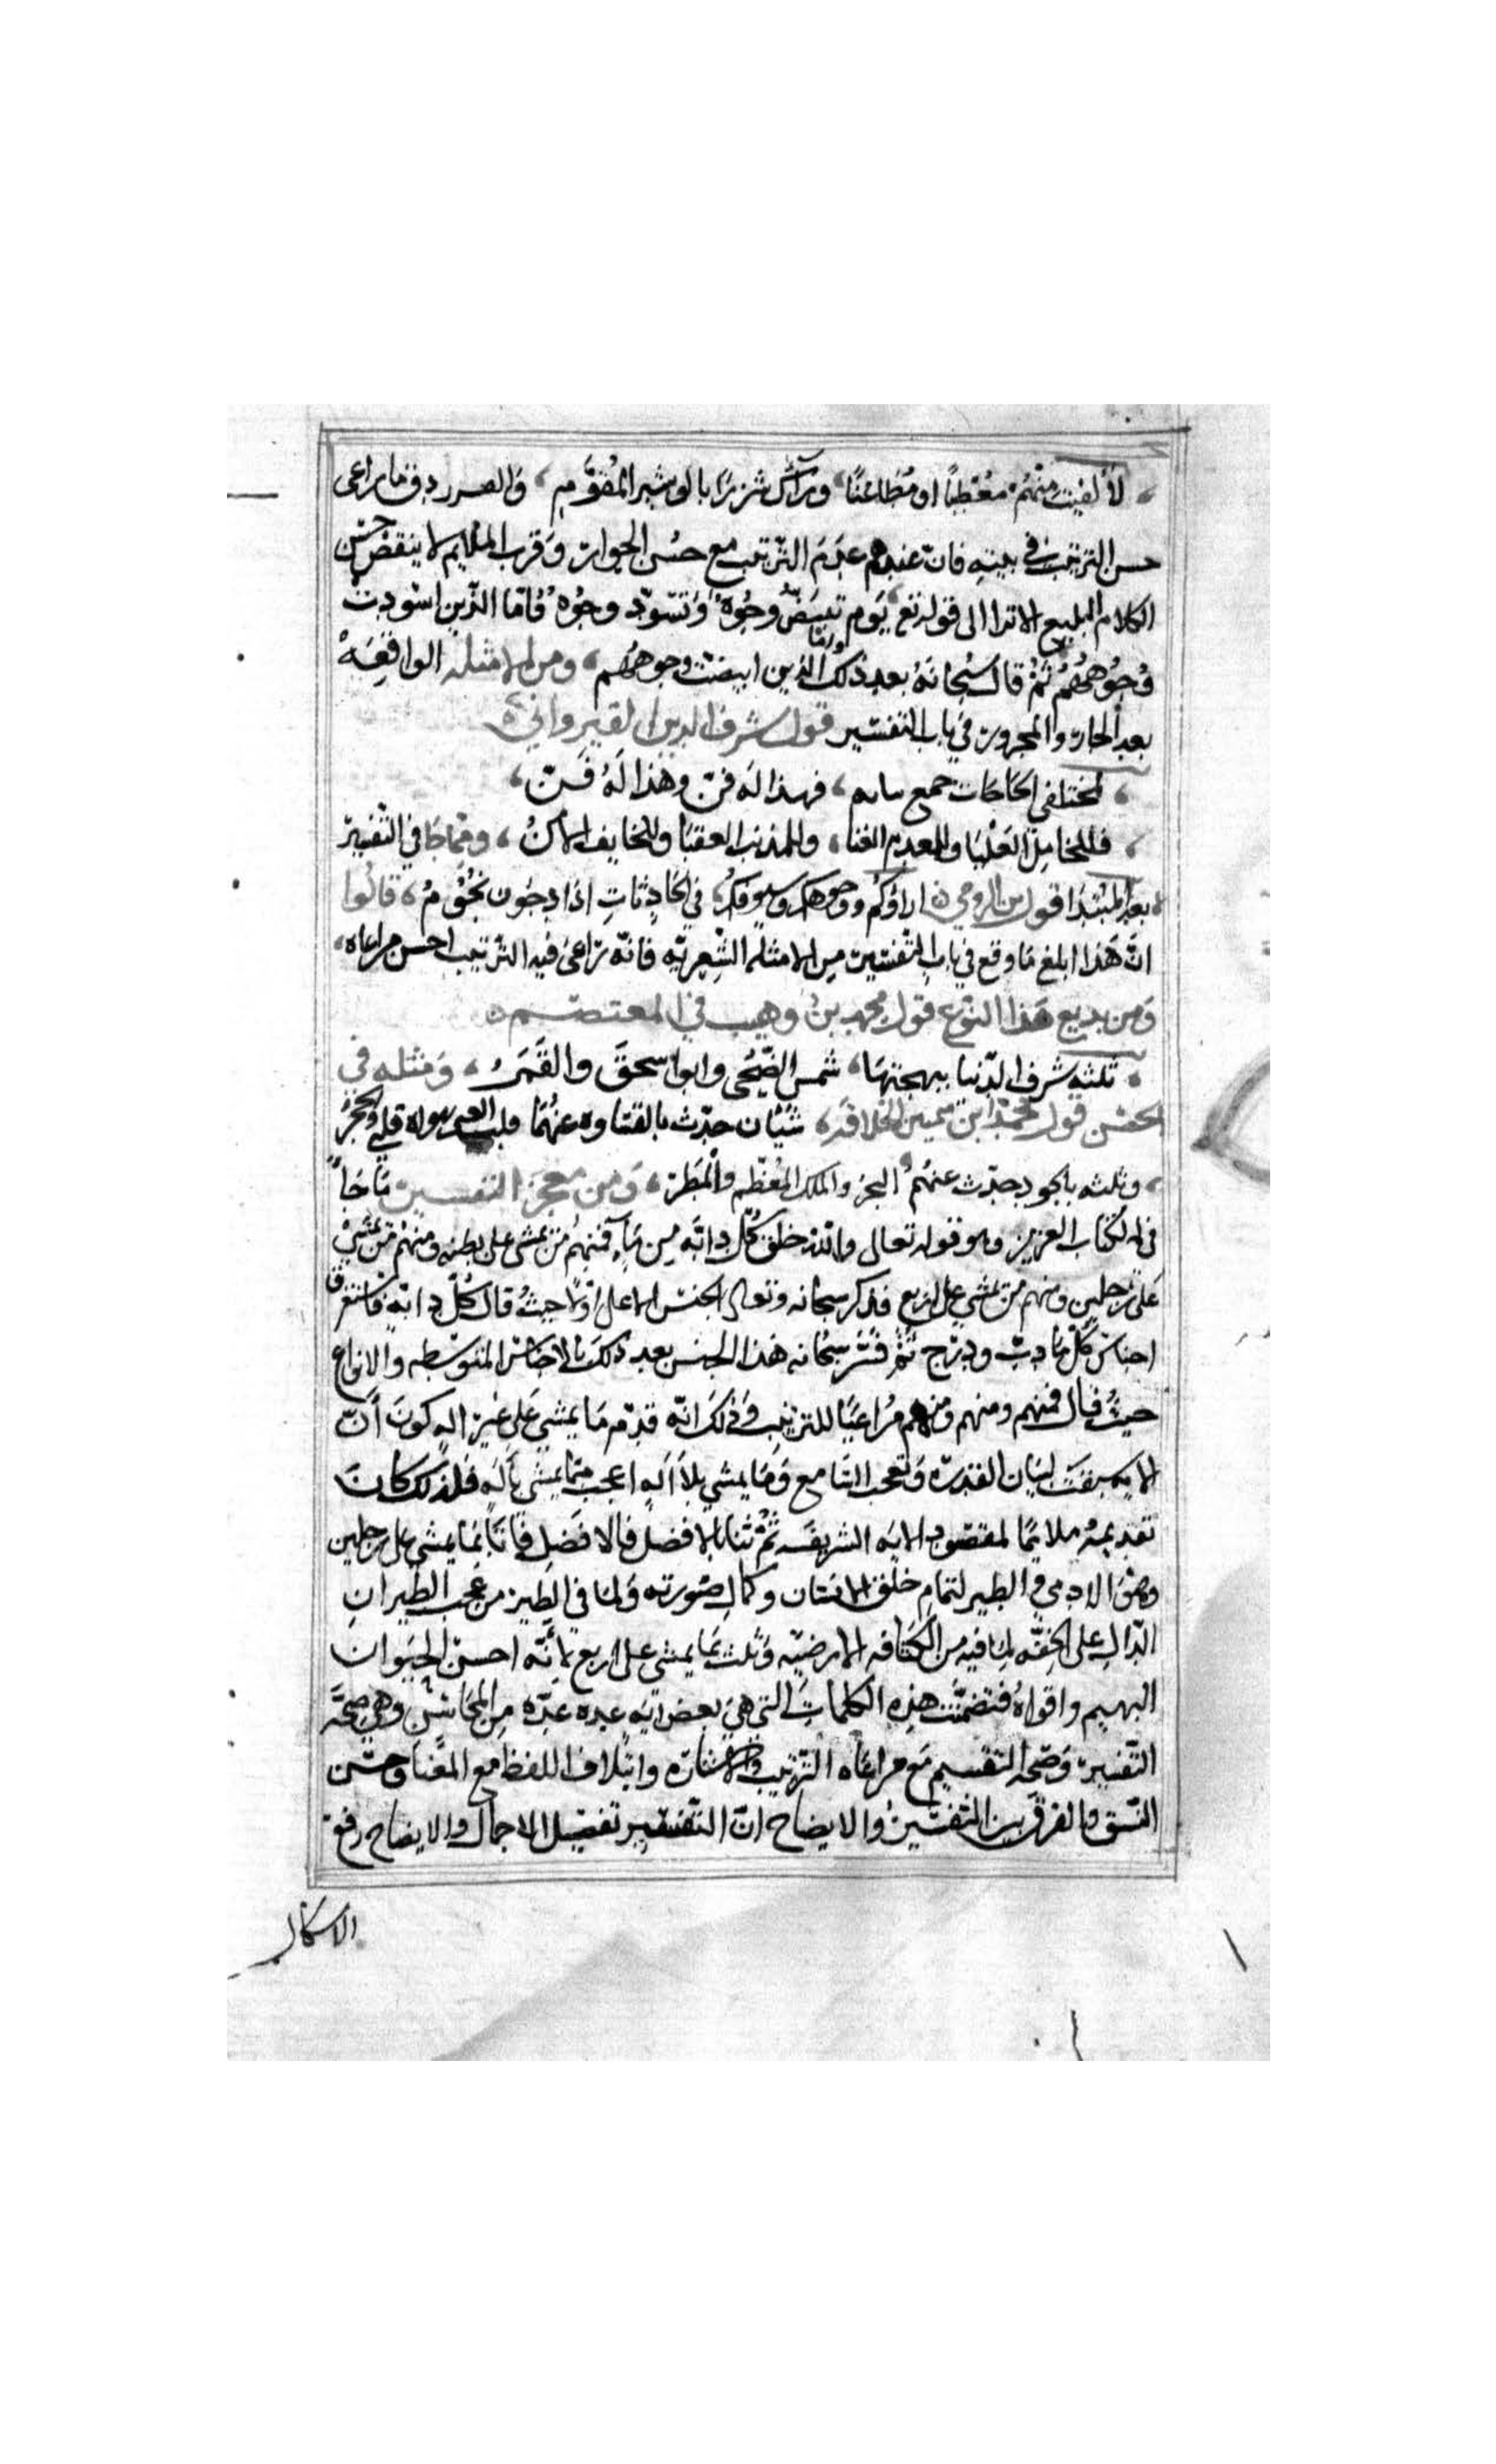 لألفيت منهم معطيا او مطاعنا وراك شزرا بالوشيج المقوم والفرزدق ما راعى
حسن الترتيب في بيته فان عندهم عدم الترتيب مع حسن الجوار وقرب الملايم لا ينقض حسن
الكلام البليغ الا ترا الى قوله تع يوم تبيض وجوه وتسود وجوه فاما الذين اسودت
وجوههم ثم قال سبحانه بعد ذلك واما الذين ابيضت وجوههم ومن الامثله الواقعه
بعد الجار والمجرور في باب التفسير قول شرف الدين القيرواني
لمختلفي الحاجات جمع ببابه فهذا له فن وهذا له فن
فللخامل العليا وللمعدم الغنا وللمذنب العقبا وللخايف الامن ومما جا في التفسير
بعد المبتدا قول بن الرومي اراؤكم ووجوهكم وسيوفكم في الحادثات اذا دجون نجوم قالوا
ان هذا ابلغ ما وقع في باب التفسير من الامثله الشعريه فانه راعى فيه الترتيب احسن مراعاه
ومن بديع هذا النوع قول محمد بن وهيب في المعتصم
ثلثه شرف الدنيا ببهجتها شمس الضحى وابو اسحق والقمر ومثله في
الحسن قول محمد ابن شمس الخلافه شيان حدث بالقساوه عنهما قلب الذي يهواه قلبي والحجر
وثلثه بالجود حدث عنهم البحر والملك المعظم والمطر ومن معجز التفسير ما جا
في الكتاب العزيز وهو قوله تعالى والله خلق كل دابه من مآء فمنهم من يمشي على بطنه ومنهم من يمشي
على رجلين ومنهم من يمشي على اربع فذكر سبحانه وتعالى الجنس الاعلى اولا حيث قال كل دابه فاستغرق
اجناس كل ما دب ودرج ثم فسر سبحانه هذا الجنس بعد ذلك بالاجناس المتوسطه والانواع
حيث قال فمنهم ومنهم ومنهم مراعيا للترتيب وذلك انه قدم ما يمشي على غير اله كون ان
الايه سيقت لبيان القدره وتعجب السامع وما يمشي بلا اله اعجب مما يمشي باله فلذلك كان
تقديمه ملايما لمقصود الايه الشريفه ثم ثنا بالافضل فالافضل فاتا بما يمشي على رجلين
وهو الادمي والطير لتمام خلق الانسان وكمال صورته ولما في الطير من عجب الطيران
الدال على الخفه لما فيه من الكثافه الارضيه وثلث بما يمشي على اربع لانه احسن الحيوان
البهيم واقواه فتضمنت هذه الكلمات التي هي بعض ايه عده عده من المحاسن وهي صحه
التفسير وصحه التقسيم مع مراعاه الترتيب والاشاره وايتلاف اللفظ مع المعنا وحسن
النسق والفرق بين التفسير والايضاح ان التفسير تفصيل الاجمال والايضاح رفع
الاشكال